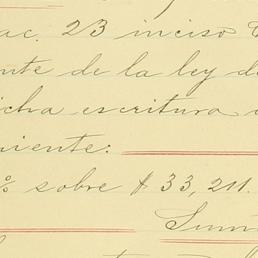 ac. 23 inciso
nte de la ley d
icha escritura
uiente:
% sobre $ 33, 211.
Sum